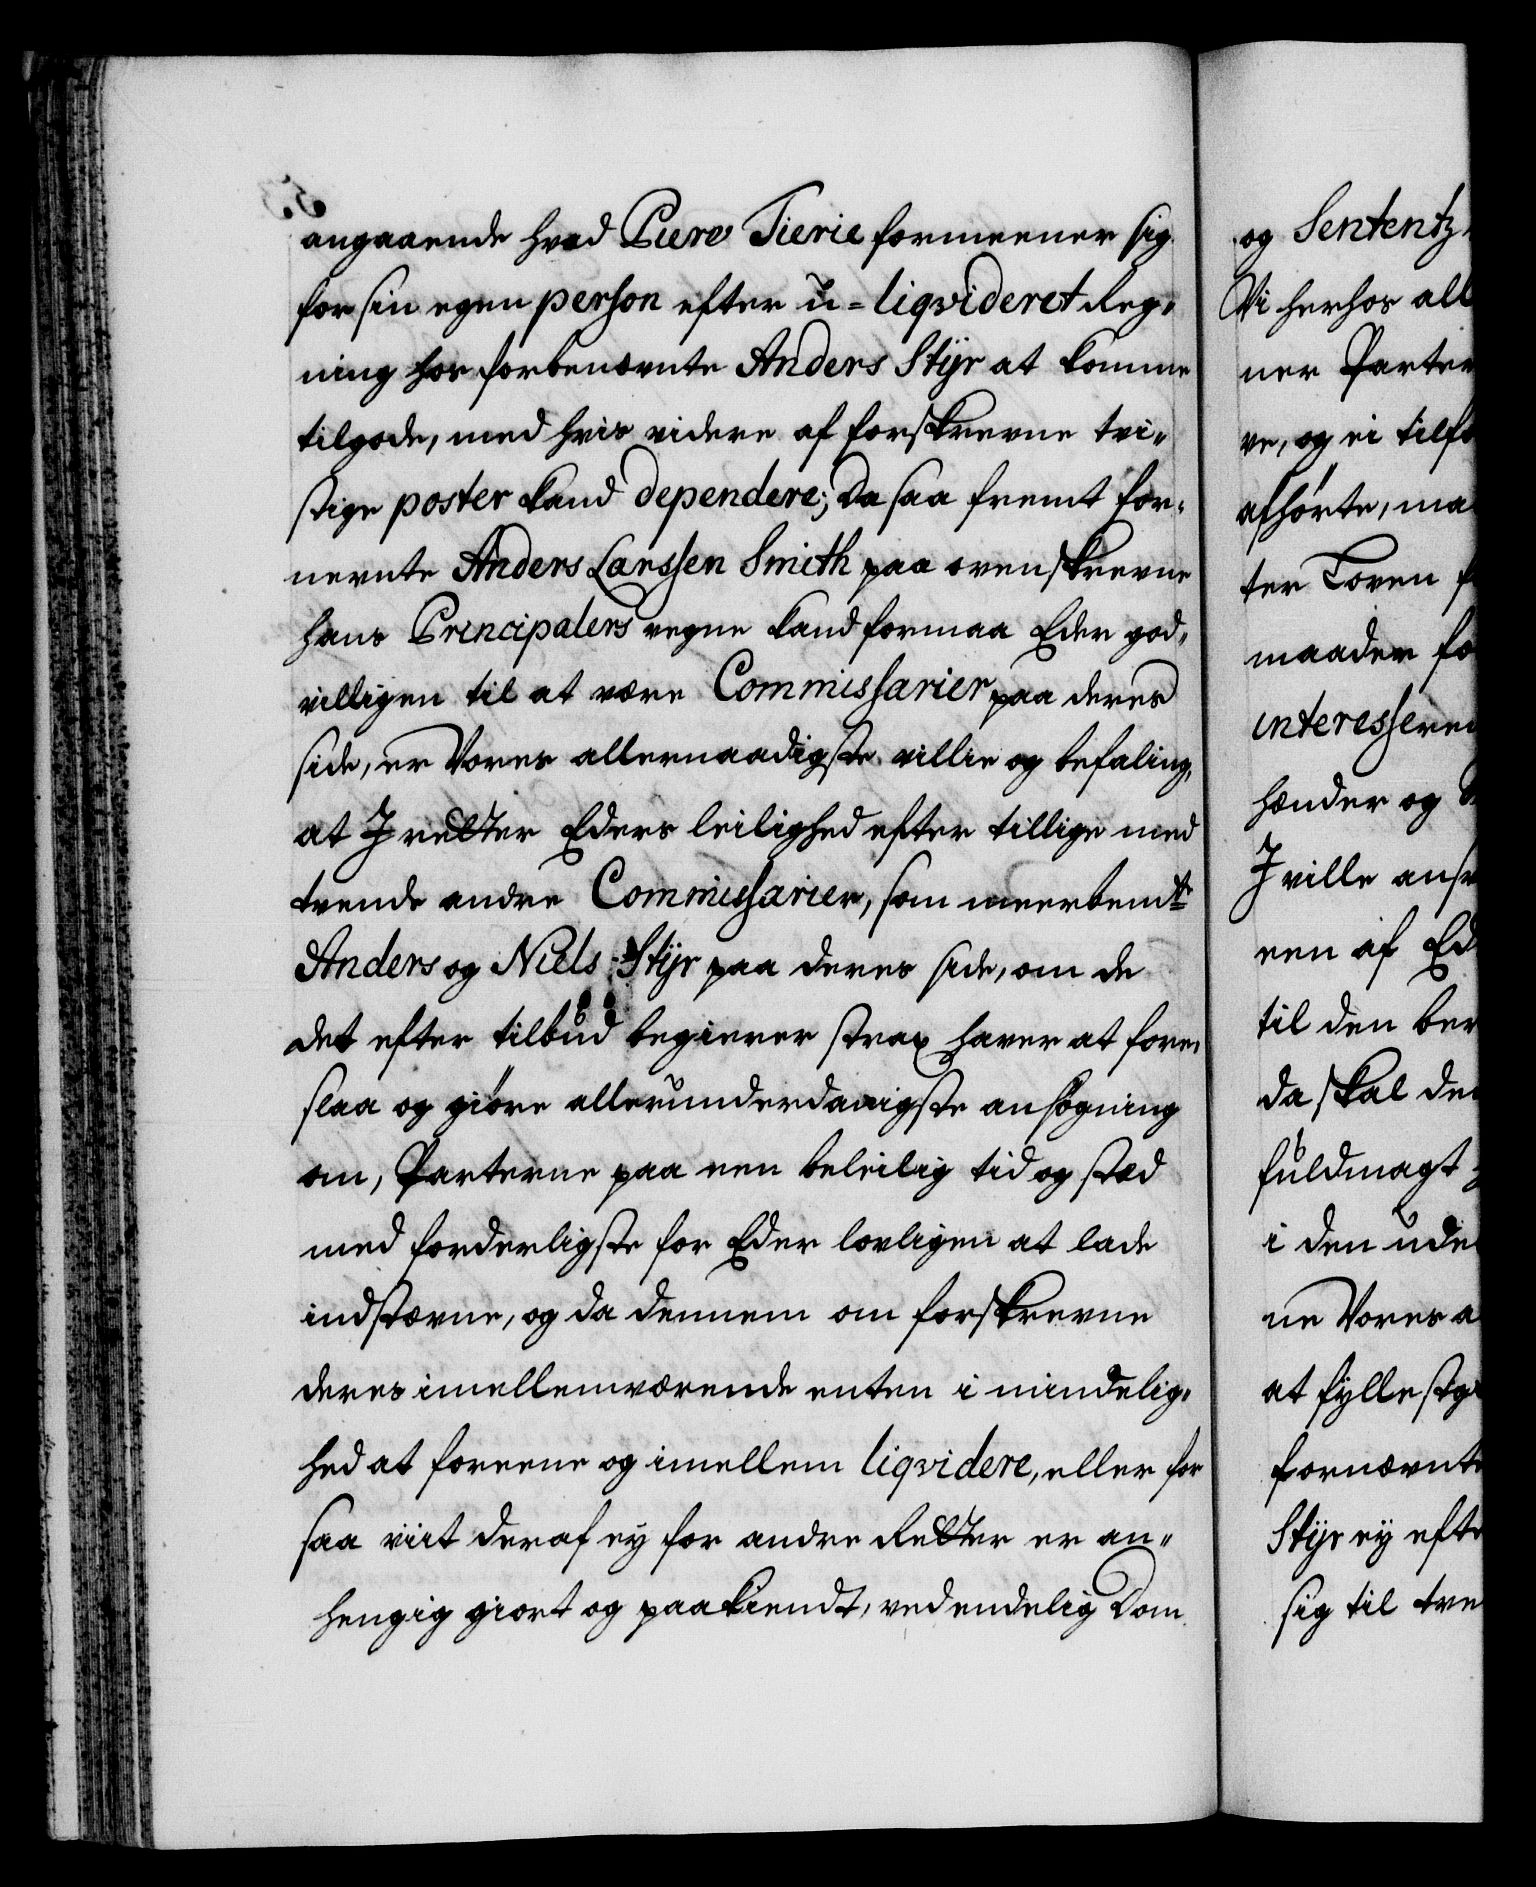 angaaende hvad Piero Tierie formeener sig
for sin egen person efter u-liqvideret Reg-
ning hos forbenævnte Anders Stÿr at komme
tilgode, med hvis videre af forskrevne tvi-
stige poster kand dependere; Da saa fremt for-
nevnte Anders Larssen Smith paa ovenskrevne
hans Principalers vegne kand formaa Eder god-
villigen til at være Commissarier paa deres
side, er Vores allernaadigste villie og befaling,
at I retter Eders leilighed efter tillige med
tvende andre Commissarier, som meerbemte
Anders og Niels Stÿr paa deres side, om de
det efter tilbud begierer strax haver at fore-
slaa og giøre allerunderdanigste ansøgning
om, Parterne paa een beleilig tid og stæd
med forderligste for Eder lovligen at lade
indstævne, og da dennem om forskrevne
deres imellemværende enten i mindelig-
hed at foreene og imellem liqvidere, eller for
saa viit deraf ey for andre Retter er an-
hengig giort og paakiendt, ved endelig Dom
og Sententz
Vi herhos all
ner Parter
ve, og ei tilf
afhørte, ma
ter Loven f
maader fo
interesserer
hænder og
I ville ansv
een af Ed
til den ber
da skal de
fuldmagt
i den ude
ne Vores a
at fyllestg
fornævnte
Stÿr eÿ efte
sig til tve